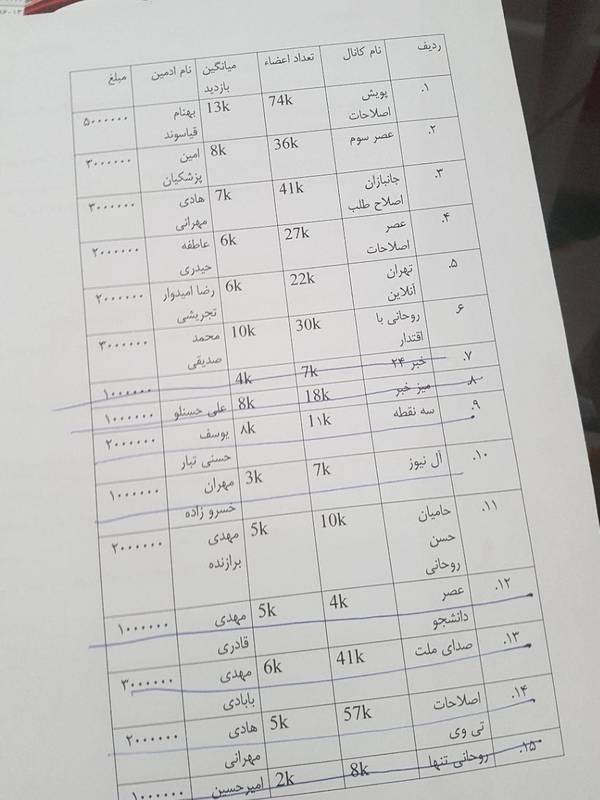 ردیف نام کانال تعداد اعضاء میانگین بازدید نام ادمین مبلغ
۱. پویش اصلاحات 74k 13k بهنام قیاسوند ۵۰۰۰۰۰۰
۲. عصر سوم 36k 8k امین پزشکیان ۳۰۰۰۰۰۰
۳. جانبازان اصلاح طلب 41k 7k هادی مهرانی ۳۰۰۰۰۰۰
۴. عصر اصلاحات 27k 6k عاطفه حیدری ۲۰۰۰۰۰۰
۵. تهران آنلاین 22k 6k رضا امیدوار تجریشی ۲۰۰۰۰۰۰
۶. روحانی با اقتدار 30k 10k محمد صدیقی ۳۰۰۰۰۰۰
۷. خبر ۲۴ 7k 4k ۱۰۰۰۰۰۰
۸. میز خبر 18k 8k علی حسنلو ۱۰۰۰۰۰۰
۹. سه نقطه 1۱k ۸k یوسف حسنی تبار ۲۰۰۰۰۰۰
۱۰. آل نیوز 7k 3k مهران خسرو زاده ۱۰۰۰۰۰۰
۱۱. حامیان حسن روحانی 10k 5k مهدی برازنده ۲۰۰۰۰۰۰
۱۲. عصر دانشجو 4k 5k مهدی قادری ۱۰۰۰۰۰۰
۱۳. صدای ملت 41k 6k مهدی بابادی ۳۰۰۰۰۰۰
۱۴. اصلاحات تی وی 57k 5k هادی مهرانی ۲۰۰۰۰۰۰
۱۵. روحانی تنها 8k 2k امیرحسین ۱۰۰۰۰۰۰